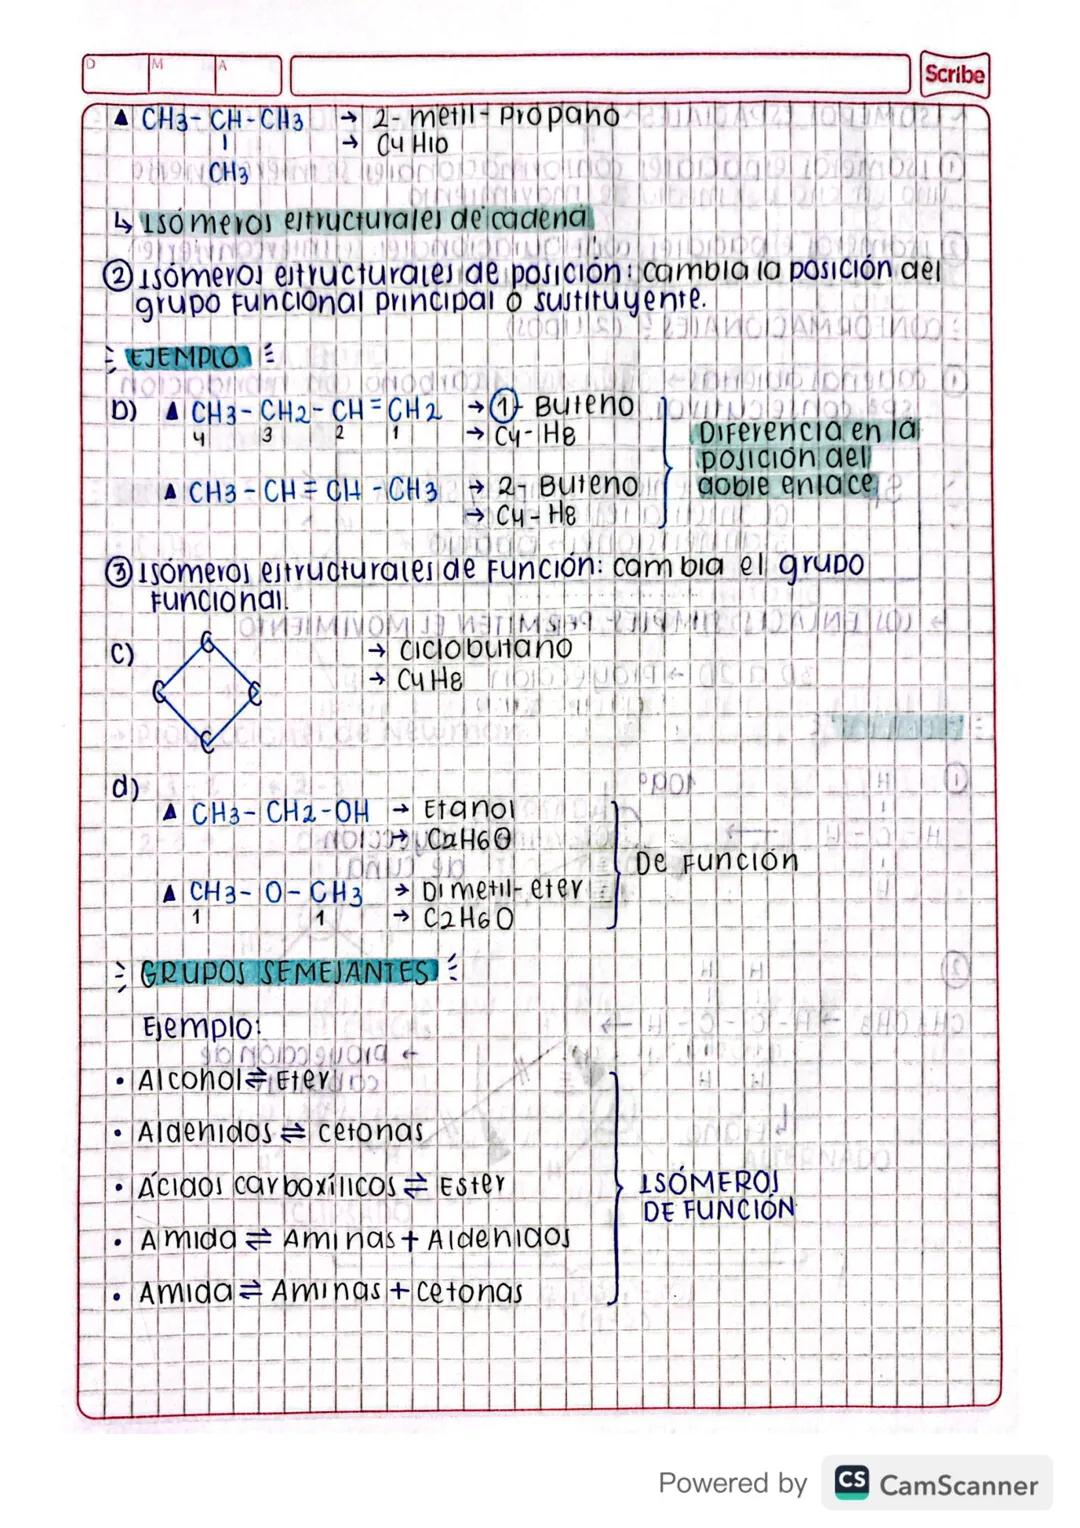 D M A
Scribe
▲ CH3-CH-CH3 → 2-metil-Propano
| → C4H10
CH3
↳ Isómeros estructurales de cadena
② Isómeros estructurales de posición: cambia la posición del
grupo funcional principal o sustituyente.
EJEMPLO
b) ▲ CH3-CH2-CH=CH2 → ①- Buteno
4 3 2 1 → C4-H8
Diferencia en la
posición del
doble enlace
▲ CH3-CH=CH-CH3 → 2- Buteno
→ C4-H8
③ Isómeros estructurales de Función: cambia el grupo
Funcional.
c) C → ciclobutano
C C → C4H8
C
d)
▲ CH3-CH2-OH → Etanol
→ C2H6O
De Función
▲ CH3-O-CH3 → Dimetil-eter
1 1 → C2H6O
GRUPOS SEMEJANTES
Ejemplo:
• Alcohol ⇌ Eter
• Aldehidos ⇌ cetonas
• Ácidos carboxílicos ⇌ Ester
• Amida ⇌ Aminas + Aldehidos
• Amida ⇌ Aminas + cetonas
ISÓMEROS
DE FUNCIÓN
Powered by CS CamScanner